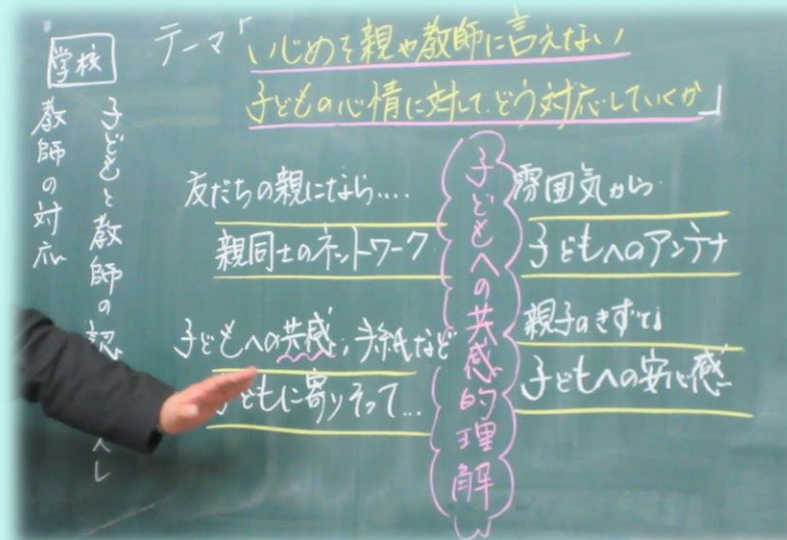 テーマ「いじめを親や教師に言えない
子どもの心情に対して、どう対応していくか」
学校
子どもと教師の認
教師の対応
友だちの親になら....
親同士のネットワーク
子どもへの共感,手紙など
どもに寄りそって...
子どもへの共感的理解
雰囲気から
子どもへのアンテナ
親子のきずな
子どもへの安心感